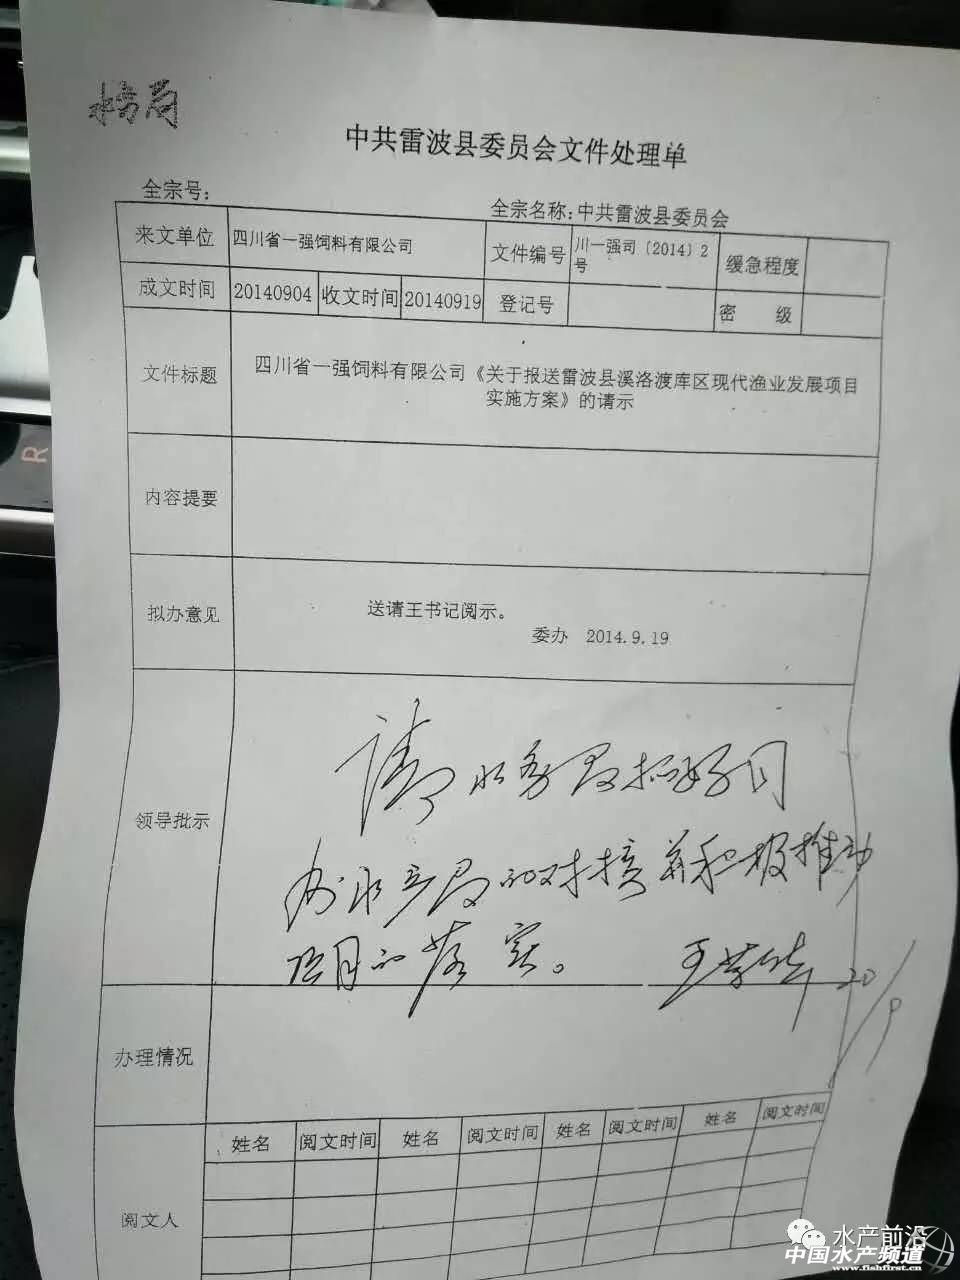 中共雷波县委员会文件处理单
全宗号：
全宗名称：中共雷波县委员会
来文单位 四川省一强饲料有限公司 文件编号 川一强司〔2014〕2号 缓急程度
成文时间 20140904 收文时间 20140919 登记号 密 级
文件标题 四川省一强饲料有限公司《关于报送雷波县溪洛渡库区现代渔业发展项目
实施方案》的请示
内容提要
拟办意见 送请王书记阅示。
委办 2014.9.19
领导批示
请水务局抓好同
州水产局的对接并积极推动
项目的落实。 20/9
办理情况
阅文人
姓名 阅文时间 姓名 阅文时间 姓名 阅文时间 姓名 阅文时间
水产前沿
中国水产频道
www.fishfirst.cn
R